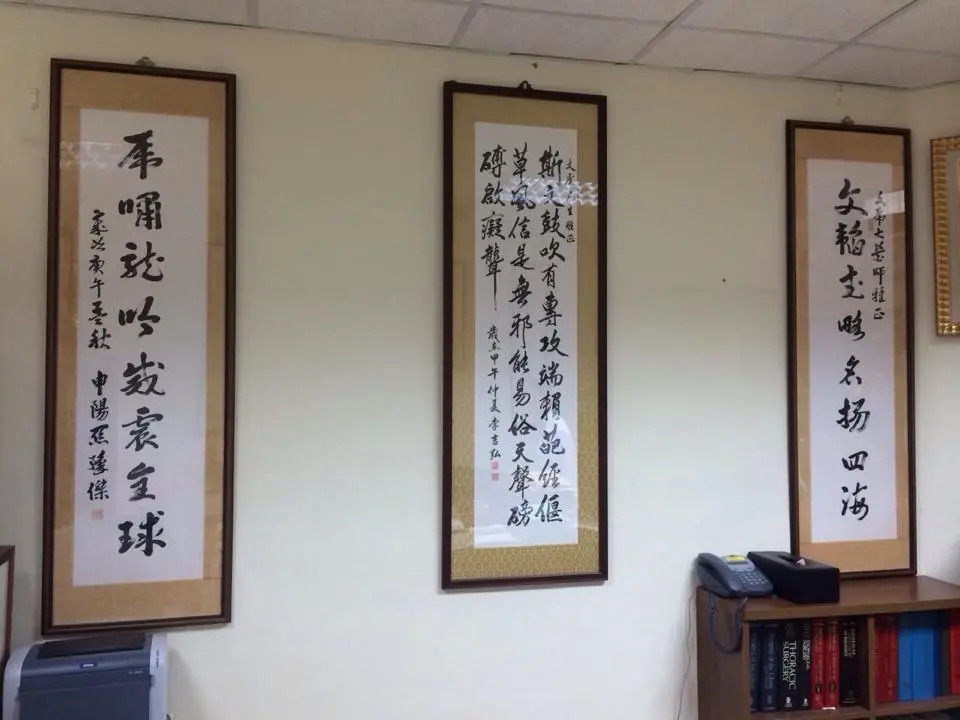 大醫師雅正
文韜武略名揚四海
先生雅正
斯文鼓吹有專攻端賴葩經偃
草風信是無邪能易俗天聲磅
礴啟癡聾
歲在甲午仲夏李吉弘
虎嘯龍吟威震全球
歲次庚午孟秋 申陽 傑
THORACIC SURGERY